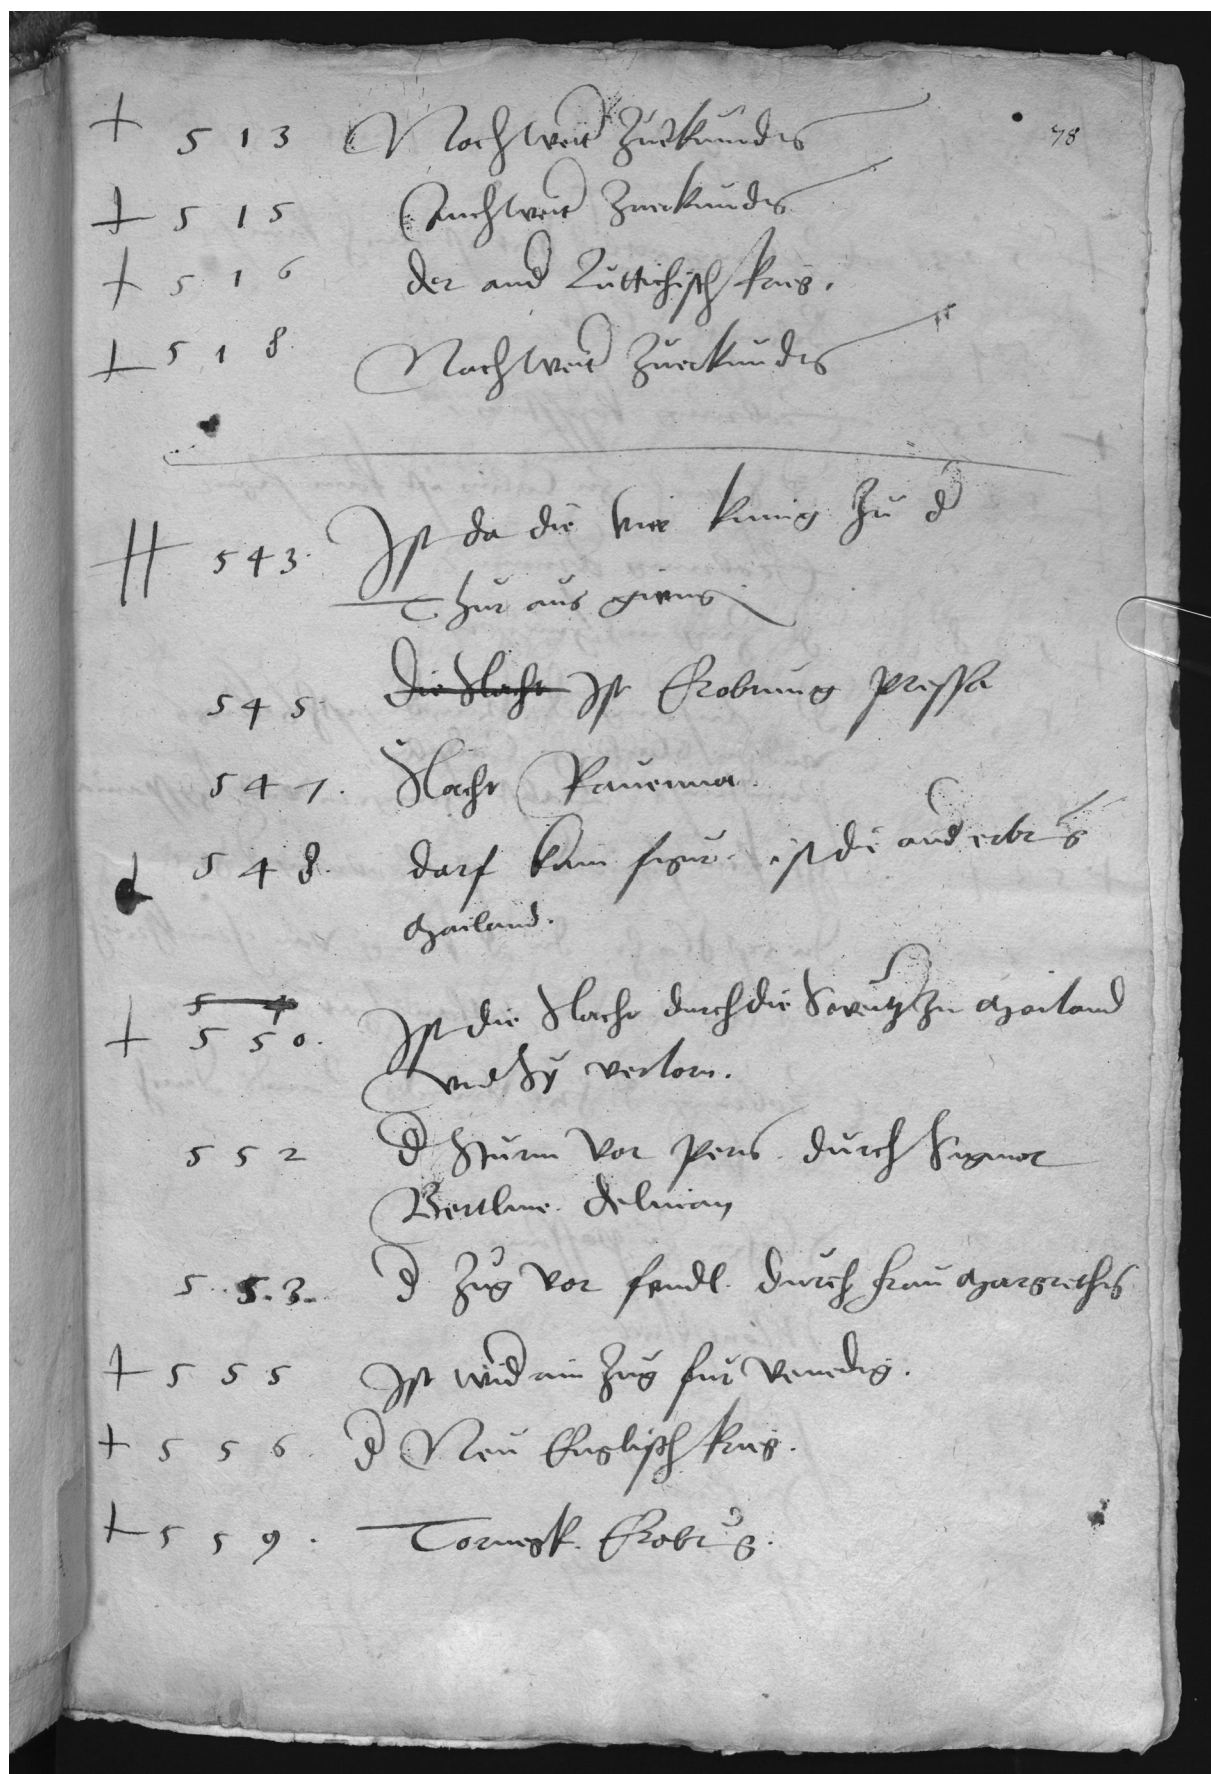 78
+ 513 Nach weit zuerkundts
+ 515 Auch weit zuerkundts
+ 516 der and Luttichisch krieg.
+ 518 Nach weit zuerkundts
543. Ist da die vier kunig zu d
Thur aus gieng
545. Die Slacht Ist Erobrung pressa
547. Slacht Rauenna.
548. darf kain figur. ist die and erbrug
Mailand.
5 4
+ 550. Ist die Slacht durch die Sweitz zu Mailand
und Sy verlorn.
552 d Sturm vor Pern. durch Signior
Bertlme. delnian
5.53. d Zug vor fendl. durch frau Margrethis
+ 555 Ist wid ain Zug fur Venedig.
+ 556. d Neu Englisch krieg.
+ 559. Tornegk. Erobrug.